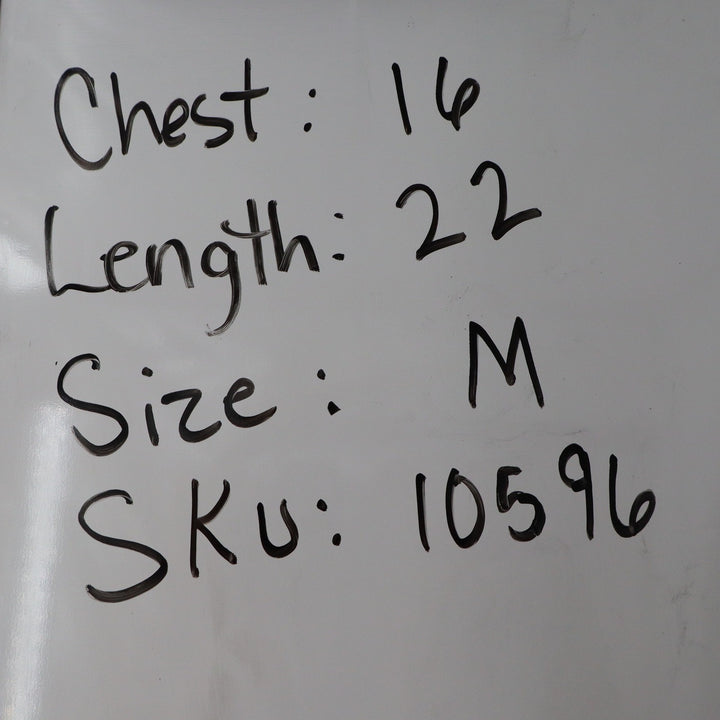 Chest: 16
Length: 22
Size: M
SKU: 10596